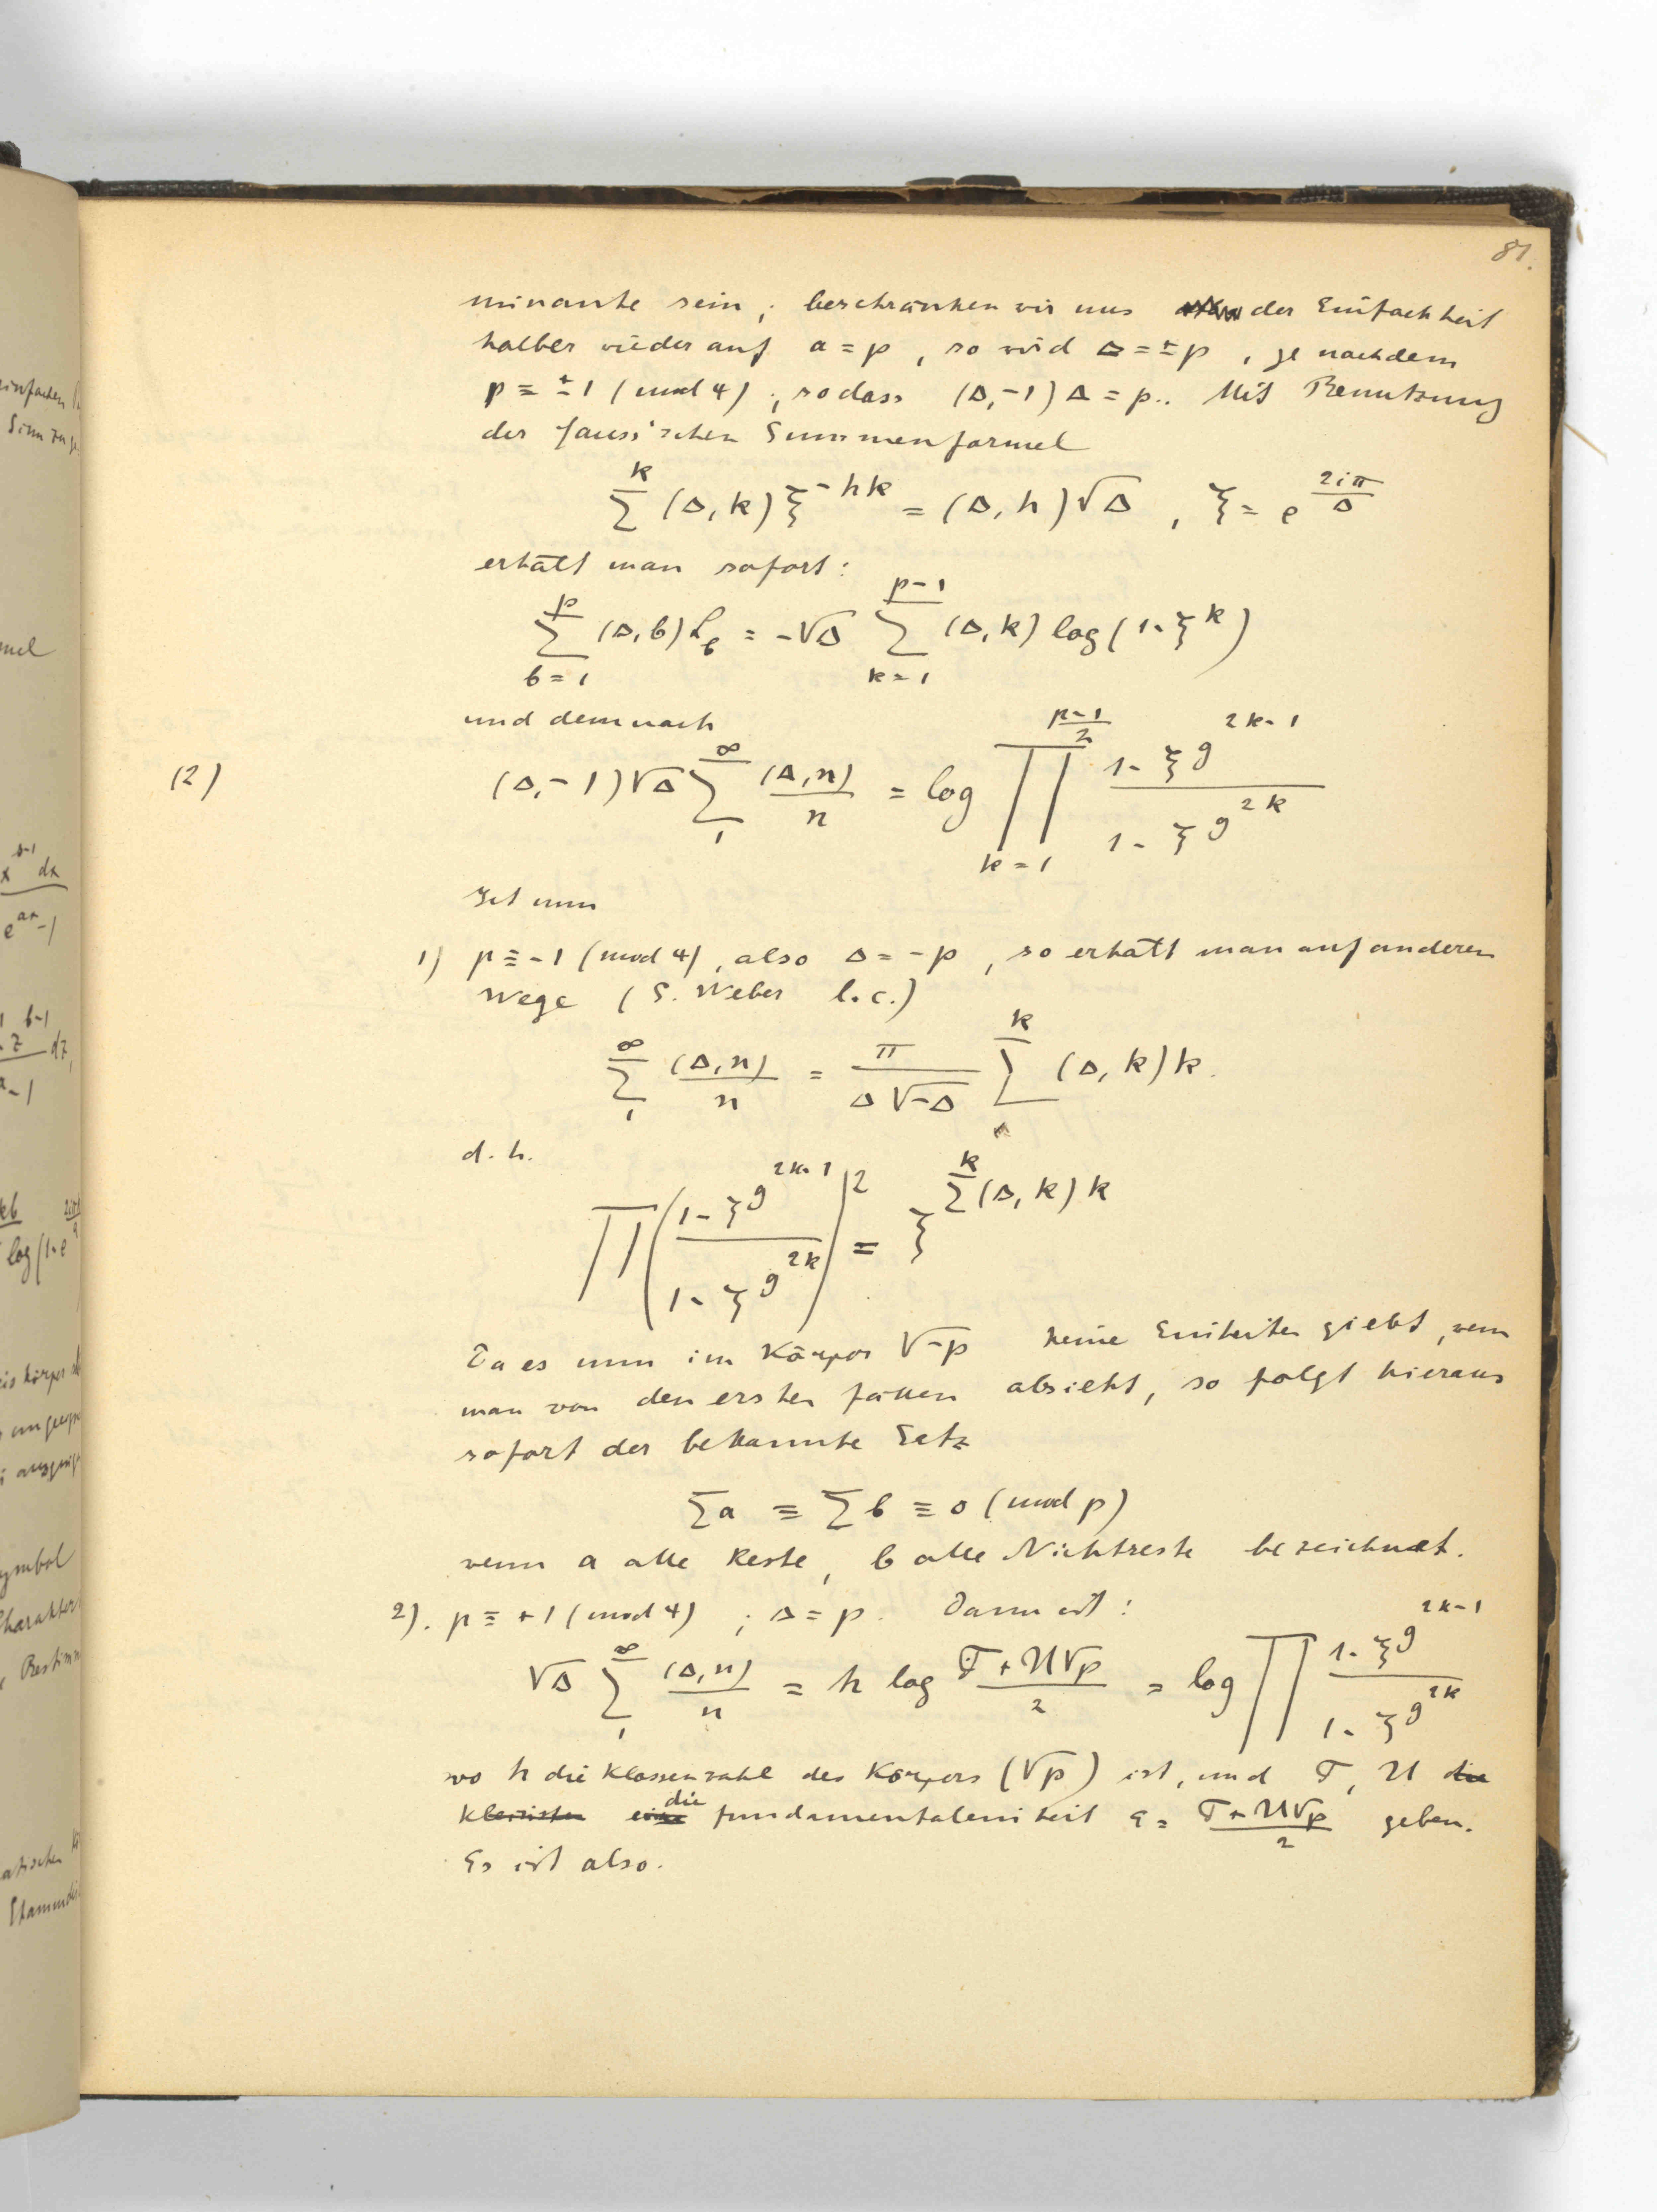 81.
minante sein; beschränken wir uns der Einfachheit
halber wieder auf a = p, so wird Δ = ±p, je nachdem
p ≡ ±1 (mod 4), sodass (Δ,-1) Δ = p. Mit Benutzung
der Gauss'schen Summenformel
∑^k (Δ, k) ξ^{-hk} = (Δ, h) √Δ, ξ = e^{2iπ/Δ}
erhält man sofort:
∑_{b=1}^{p} (Δ, b) L_b = -√Δ ∑_{k=1}^{p-1} (Δ, k) log (1-ξ^k)
und demnach
(2) (Δ,-1) √Δ ∑_1^∞ (Δ,n)/n = log ∏_{k=1}^{(p-1)/2} (1-ξ^{g^{2k-1}})/(1-ξ^{g^{2k}})
Ist nun
1) p ≡ -1 (mod 4), also Δ = -p, so erhält man auf anderem
Wege (S. Weber l.c.)
∑_1^∞ (Δ,n)/n = π/(Δ√-Δ) ∑^k (Δ, k) k.
d.h.
∏ ((1-ξ^{g^{2k-1}})/(1-ξ^{g^{2k}}))^2 = ξ^{∑^k (Δ, k) k}
Da es nun im Körper √-p keine Einheiten giebt, wenn
man von den ersten Fällen absieht, so folgt hieraus
sofort der bekannte Satz
∑a ≡ ∑b ≡ 0 (mod p)
wenn a alle Reste, b alle Nichtreste bezeichnet.
2). p ≡ +1 (mod 4); Δ = p. Dann ist:
√Δ ∑_1^∞ (Δ,n)/n = h log (T+U√p)/2 = log ∏ (1-ξ^{g^{2k-1}})/(1-ξ^{g^{2k}})
wo h die Klassenzahl des Körpers (√p) ist, und T, U die
kleinsten eine die Fundamentaleinheit ε = (T+U√p)/2 geben.
Es ist also.